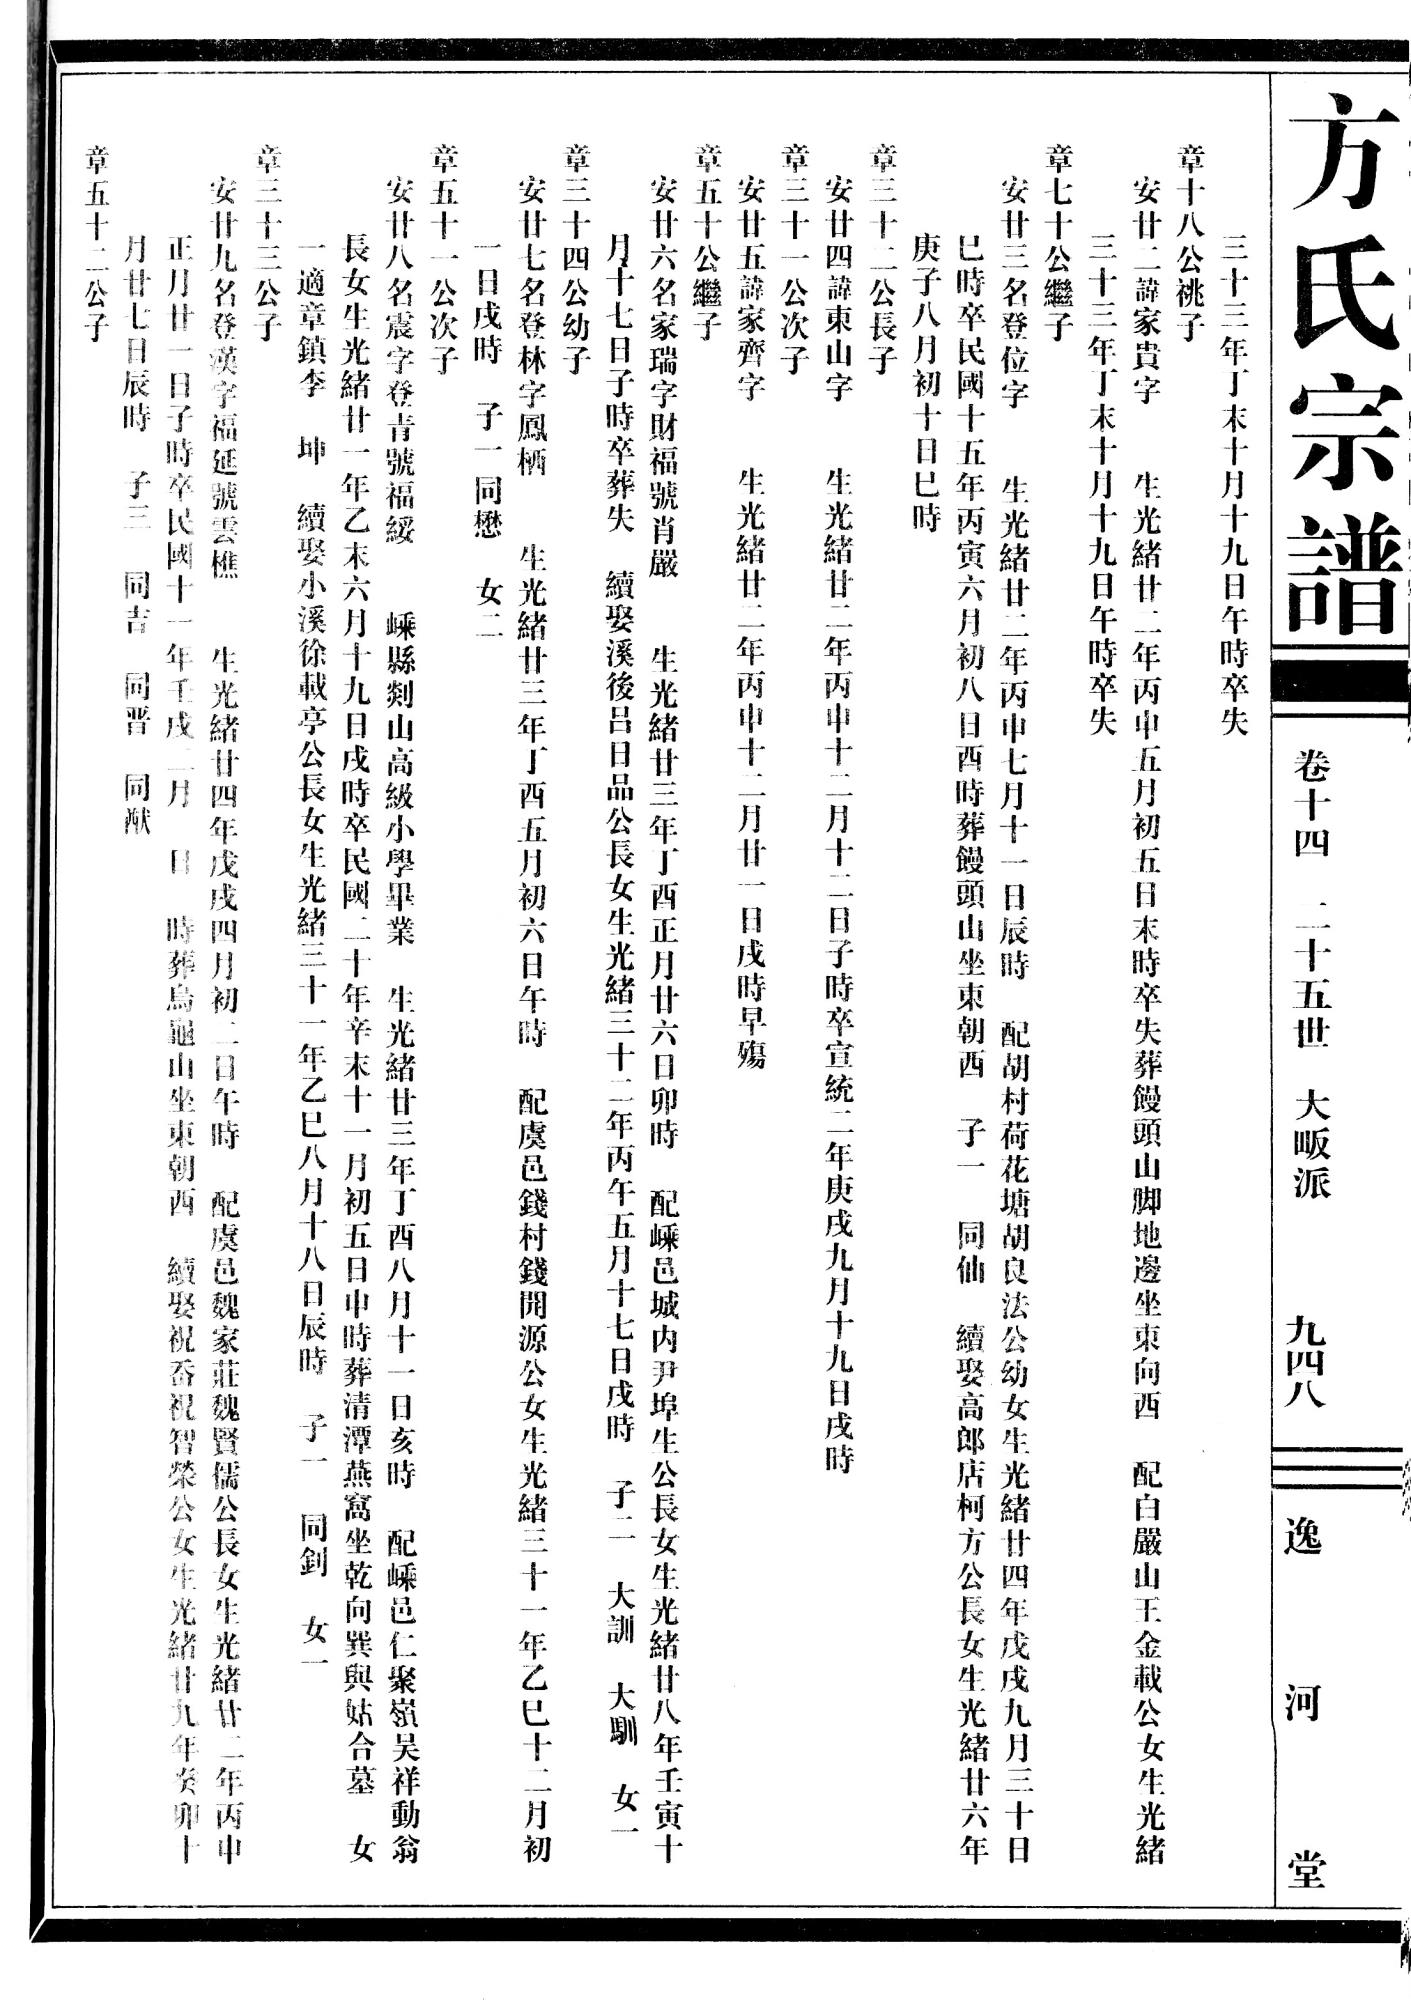 方氏宗譜
卷十四　二十五世　大畈派　九四八
逸河堂
三十三年丁未十月十九日午時卒失
章十八公祧子
安廿二諱家貴字　生光緒廿二年丙申五月初五日未時卒失葬饅頭山脚地邊坐東向西　配白嚴山王金載公女生光緒
三十三年丁未十月十九日午時卒失
章七十公繼子
安廿三名登位字　生光緒廿二年丙申七月十一日辰時　配胡村荷花塘胡良法公幼女生光緒廿四年戊戌九月三十日
巳時卒民國十五年丙寅六月初八日酉時葬饅頭山坐東朝西　子一　同仙　續娶高郎店柯方公長女生光緒廿六年
庚子八月初十日巳時
章三十二公長子
安廿四諱東山字　生光緒廿二年丙申十二月十二日子時卒宣統二年庚戌九月十九日戌時
章三十一公次子
安廿五諱家齊字　生光緒廿二年丙申十二月廿一日戌時早殤
章五十公繼子
安廿六名家瑞字財福號肖嚴　生光緒廿三年丁酉正月廿六日卯時　配嵊邑城内尹埠生公長女生光緒廿八年壬寅十
月十七日子時卒葬失　續娶溪後呂日品公長女生光緒三十二年丙午五月十七日戌時　子二　大訓　大馴　女一
章三十四公幼子
安廿七名登林字鳳栖　生光緒廿三年丁酉五月初六日午時　配虞邑錢村錢開源公女生光緒三十一年乙巳十二月初
一日戌時　子一同懋　女二
章五十一公次子
安廿八名震字登青號福綏　嵊縣剡山高級小學畢業　生光緒廿三年丁酉八月十一日亥時　配嵊邑仁聚嶺吴祥動翁
長女生光緒廿一年乙未六月十九日戌時卒民國二十年辛未十一月初五日申時葬清潭燕窩坐乾向巽與姑合墓　女
一適章鎮李　坤　續娶小溪徐載亭公長女生光緒三十一年乙巳八月十八日辰時　子一　同釗　女一
章三十三公子
安廿九名登漢字福延號雲樵　生光緒廿四年戊戌四月初二日午時　配虞邑魏家莊魏賢儒公長女生光緒廿二年丙申
正月廿一日子時卒民國十一年壬戌二月　日　時葬烏龜山坐東朝西　續娶祝岙祝智榮公女生光緒廿九年癸卯十
月廿七日辰時　子三　同吉　同晋　同猷
章五十二公子